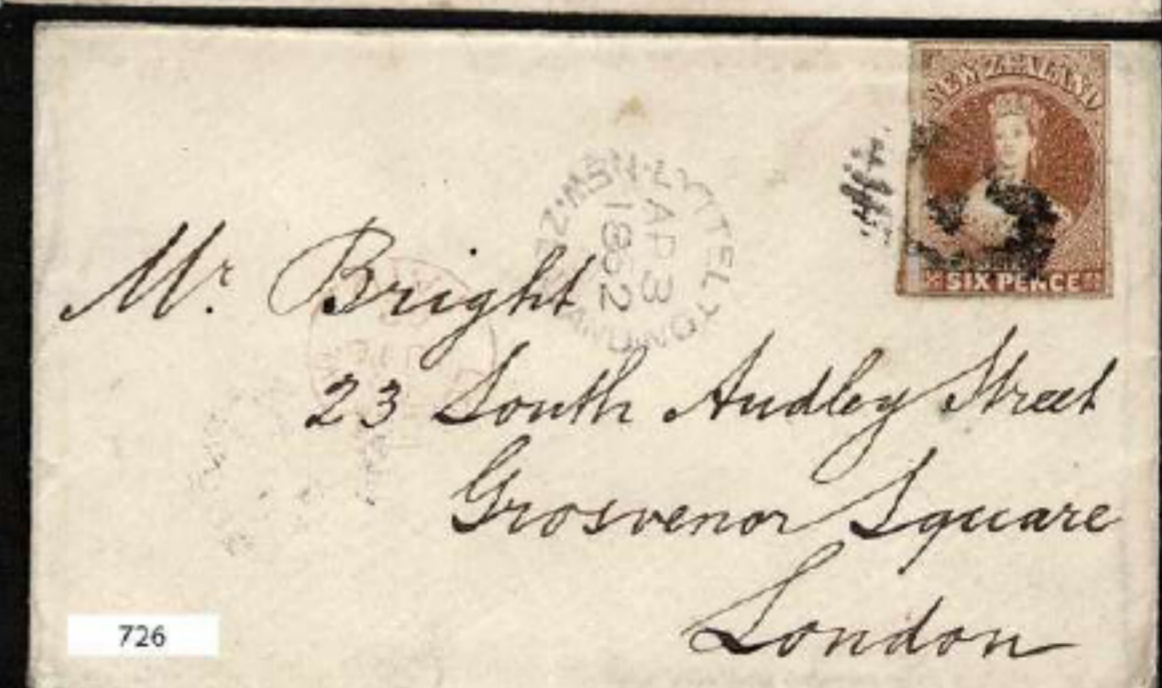 NEW ZEALAND
SIX PENCE
LYTTELTON
NEW·ZEALAND
AP 3
1862
Mr. Bright
23 South Audley Street
Grosvenor Square
London
726